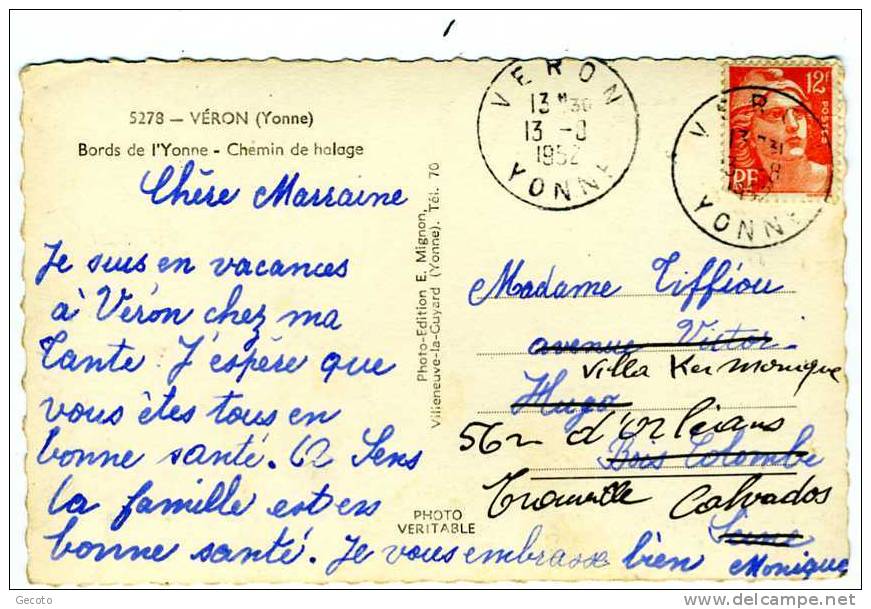 5278 — VÉRON (Yonne)
Bords de l'Yonne - Chemin de halage
Chère Marraine
Je suis en vacances
à Véron chez ma
Tante. J'espère que
vous êtes tous en
bonne santé. A Sens
la famille est en
bonne santé. Je vous embrasse bien
Monique
Photo-Edition E. Mignon,
Villeneuve-la-Guyard (Yonne). Tél. 70
PHOTO
VERITABLE
VERON
13 H30
13 -8
1952
YONNE
12F
POSTES
RF
VER
YONNE
Madame Tiffiou
avenue Victor
Villa Ker Monique
Hugo
56 r d'Orléans
Bois Colombe
Trouville Calvados
Seine
© delcampe.net